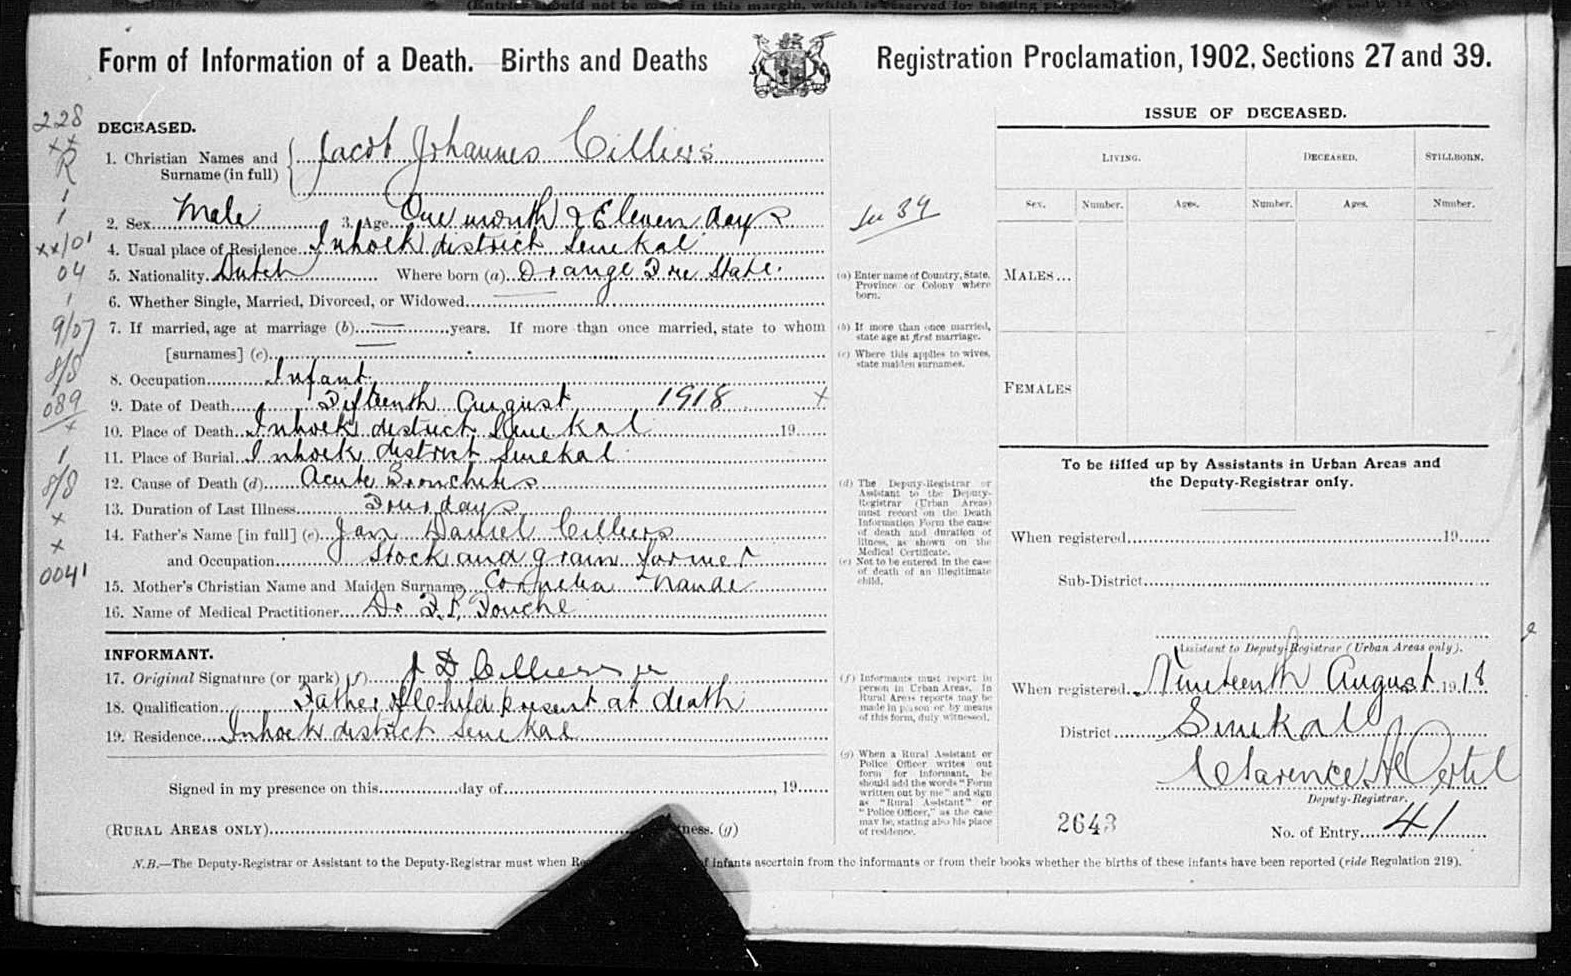 (Entries should not be made in this margin, which is reserved for binding purposes.)
Form of Information of a Death. Births and Deaths Registration Proclamation, 1902. Sections 27 and 39.
228
DECEASED.
1. Christian Names and Surname (in full) Jacob Johannes Cilliers
2. Sex Male 3. Age One month & Eleven days
4. Usual place of Residence Inhoek district Senekal
5. Nationality Dutch Where born (a) Orange Free State.
6. Whether Single, Married, Divorced, or Widowed
7. If married, age at marriage (b) years. If more than once married, state to whom
[surnames] (c)
8. Occupation Infant
9. Date of Death Fifteenth August 1918 x
10. Place of Death Inhoek district Senekal 19
11. Place of Burial Inhoek district Senekal
12. Cause of Death (d) Acute Bronchitis
13. Duration of Last Illness Four days
14. Father's Name [in full] (e) Jan Daniel Cilliers
and Occupation Stock and grain farmer
15. Mother's Christian Name and Maiden Surname Cornelia Naude
16. Name of Medical Practitioner Dr F.P. Fouche
xx
R
1
1
xx/01
04
1
9/07
8/8
089
x
1
8/8
x
x
0041
INFORMANT.
17. Original Signature (or mark) (f) J D Cilliers jr
18. Qualification Father of Child present at death
19. Residence Inhoek district Senekal
Signed in my presence on this day of , 19
(RURAL AREAS ONLY) ness. (g)
39
(a) Enter name of Country, State,
Province or Colony where
born.
(b) If more than once married,
state age at first marriage.
(c) Where this applies to wives,
state maiden surnames.
(d) The Deputy-Registrar or
Assistant to the Deputy-
Registrar (Urban Areas)
must record on the Death
Information Form the cause
of death and duration of
illness, as shown on the
Medical Certificate.
(e) Not to be entered in the case
of death of an illegitimate
child.
(f) Informants must report in
person in Urban Areas. In
Rural Areas reports may be
made in person or by means
of this form, duly witnessed.
(g) When a Rural Assistant or
Police Officer writes out
form for informant, he
should add the words "Form
written out by me" and sign
as "Rural Assistant" or
"Police Officer," as the case
may be, stating also his place
of residence.
ISSUE OF DECEASED.
LIVING. DECEASED. STILLBORN.
Sex. Number. Ages. Number. Ages. Number.
MALES...
FEMALES
To be filled up by Assistants in Urban Areas and
the Deputy-Registrar only.
When registered 19
Sub-District
Assistant to Deputy-Registrar (Urban Areas only).
When registered Nineteenth August 1918
District Senekal
Clarence H Oertel
Deputy-Registrar.
2643 No. of Entry 41
N.B.—The Deputy-Registrar or Assistant to the Deputy-Registrar must when Re of infants ascertain from the informants or from their books whether the births of these infants have been reported (vide Regulation 219).